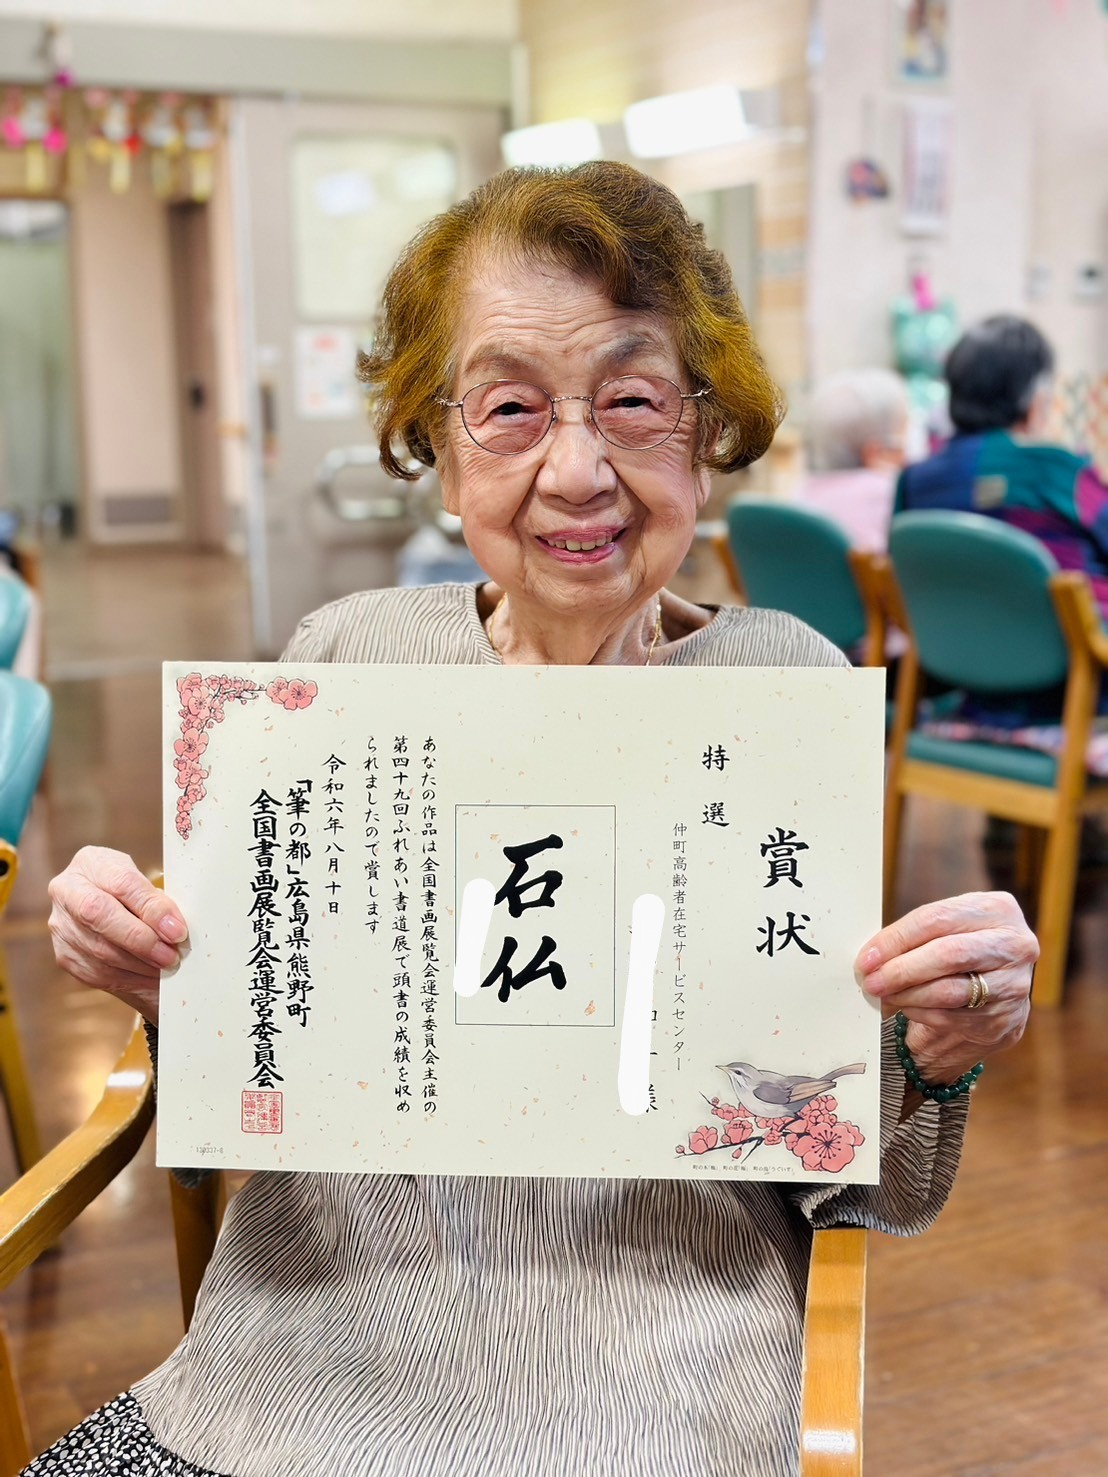 賞状
特選
仲町高齢者在宅サービスセンター
様
石仏
あなたの作品は全国書画展覧会運営委員会主催の
第四十九回ふれあい書道展で頭書の成績を収め
られましたので賞します
令和六年八月十日
「筆の都」広島県熊野町
全国書画展覧会運営委員会